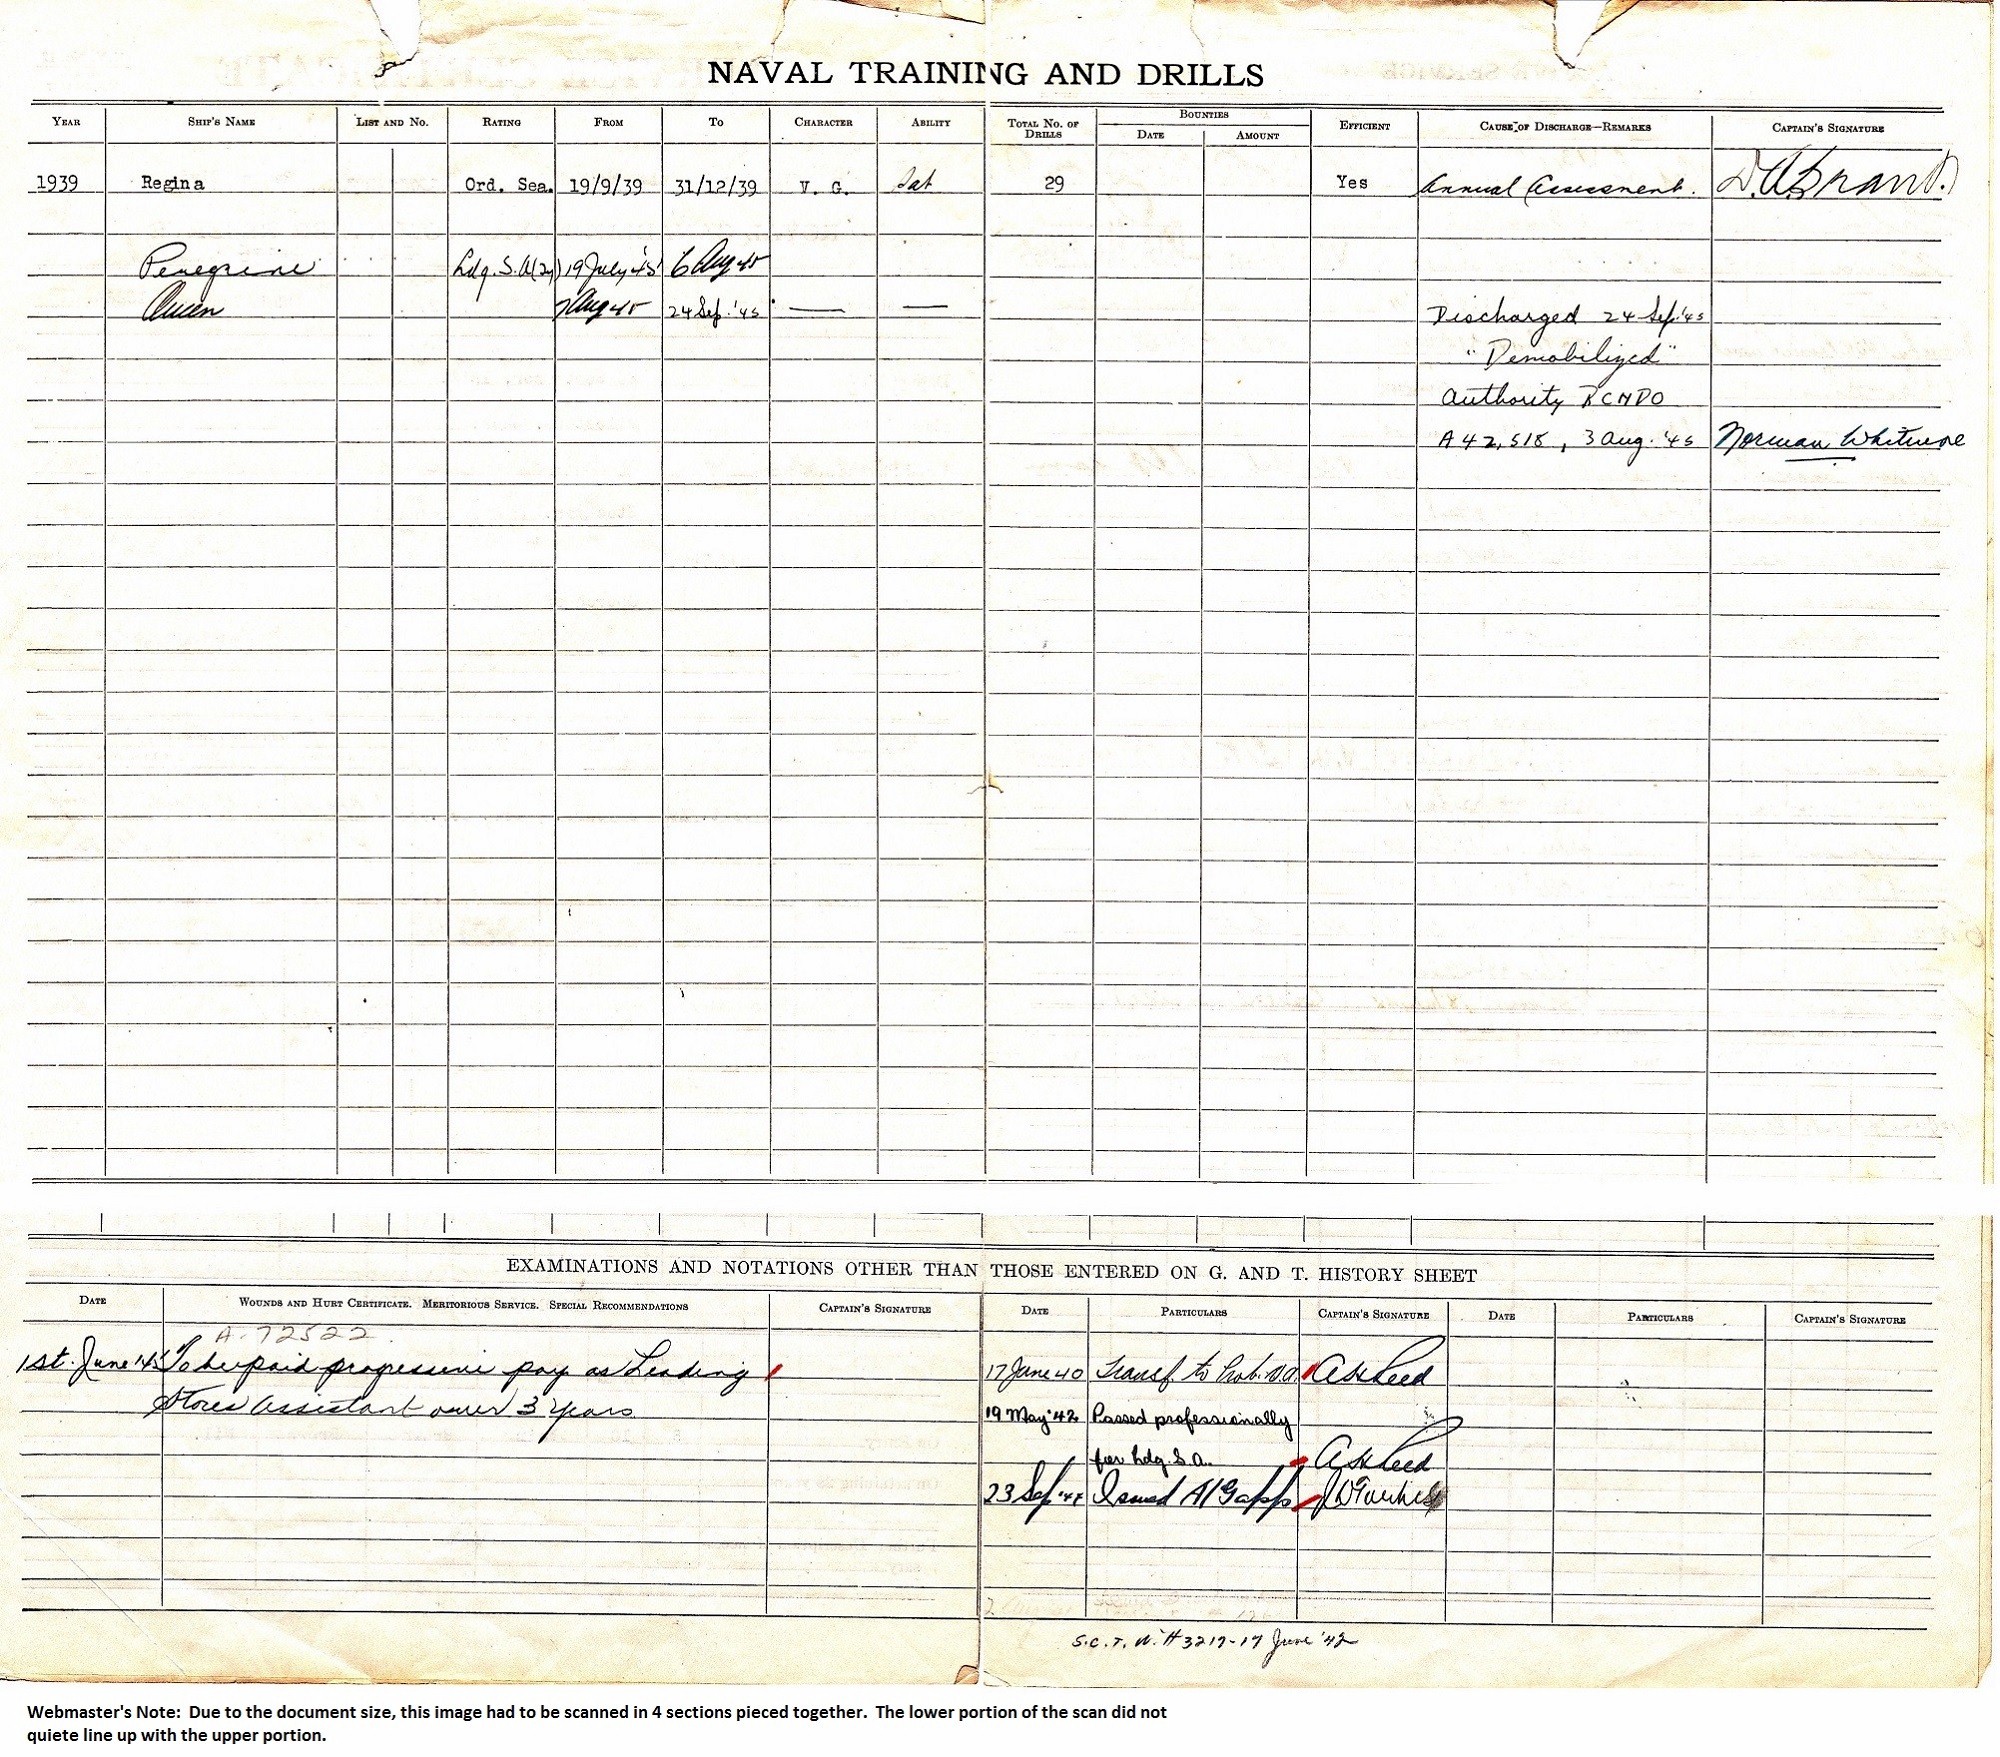 NAVAL TRAINING AND DRILLS
YEAR SHIP'S NAME LIST AND NO. RATING FROM TO CHARACTER ABILITY TOTAL NO. OF DRILLS BOUNTIES DATE AMOUNT EFFICIENT CAUSE OF DISCHARGE—REMARKS CAPTAIN'S SIGNATURE
1939 Regina Ord. Sea. 19/9/39 31/12/39 V. G. Sat 29 Yes Annual Assessment.
Peregrine Ldg. S.A. 19 July '45 6 Aug 45
7 Aug 45 24 Sep. '45 — — Discharged 24 Sep. '45
"Demobilized"
Authority
A 42,518, 3 Aug. '45 Norman Whitmore
EXAMINATIONS AND NOTATIONS OTHER THAN THOSE ENTERED ON G. AND T. HISTORY SHEET
DATE WOUNDS AND HURT CERTIFICATE. MERITORIOUS SERVICE. SPECIAL RECOMMENDATIONS CAPTAIN'S SIGNATURE DATE PARTICULARS CAPTAIN'S SIGNATURE DATE PARTICULARS CAPTAIN'S SIGNATURE
A-72522
1st. June '45 To be paid progressive pay as Leading 17 June 40 Transf to Prob. S.A.
Stores Assistant over 3 years 19 May '42 Passed professionally
for Ldg. S.A.
23 Sep. Issued
S.C.T. N. # 3217-17 June '42
Webmaster's Note: Due to the document size, this image had to be scanned in 4 sections pieced together. The lower portion of the scan did not
quiete line up with the upper portion.